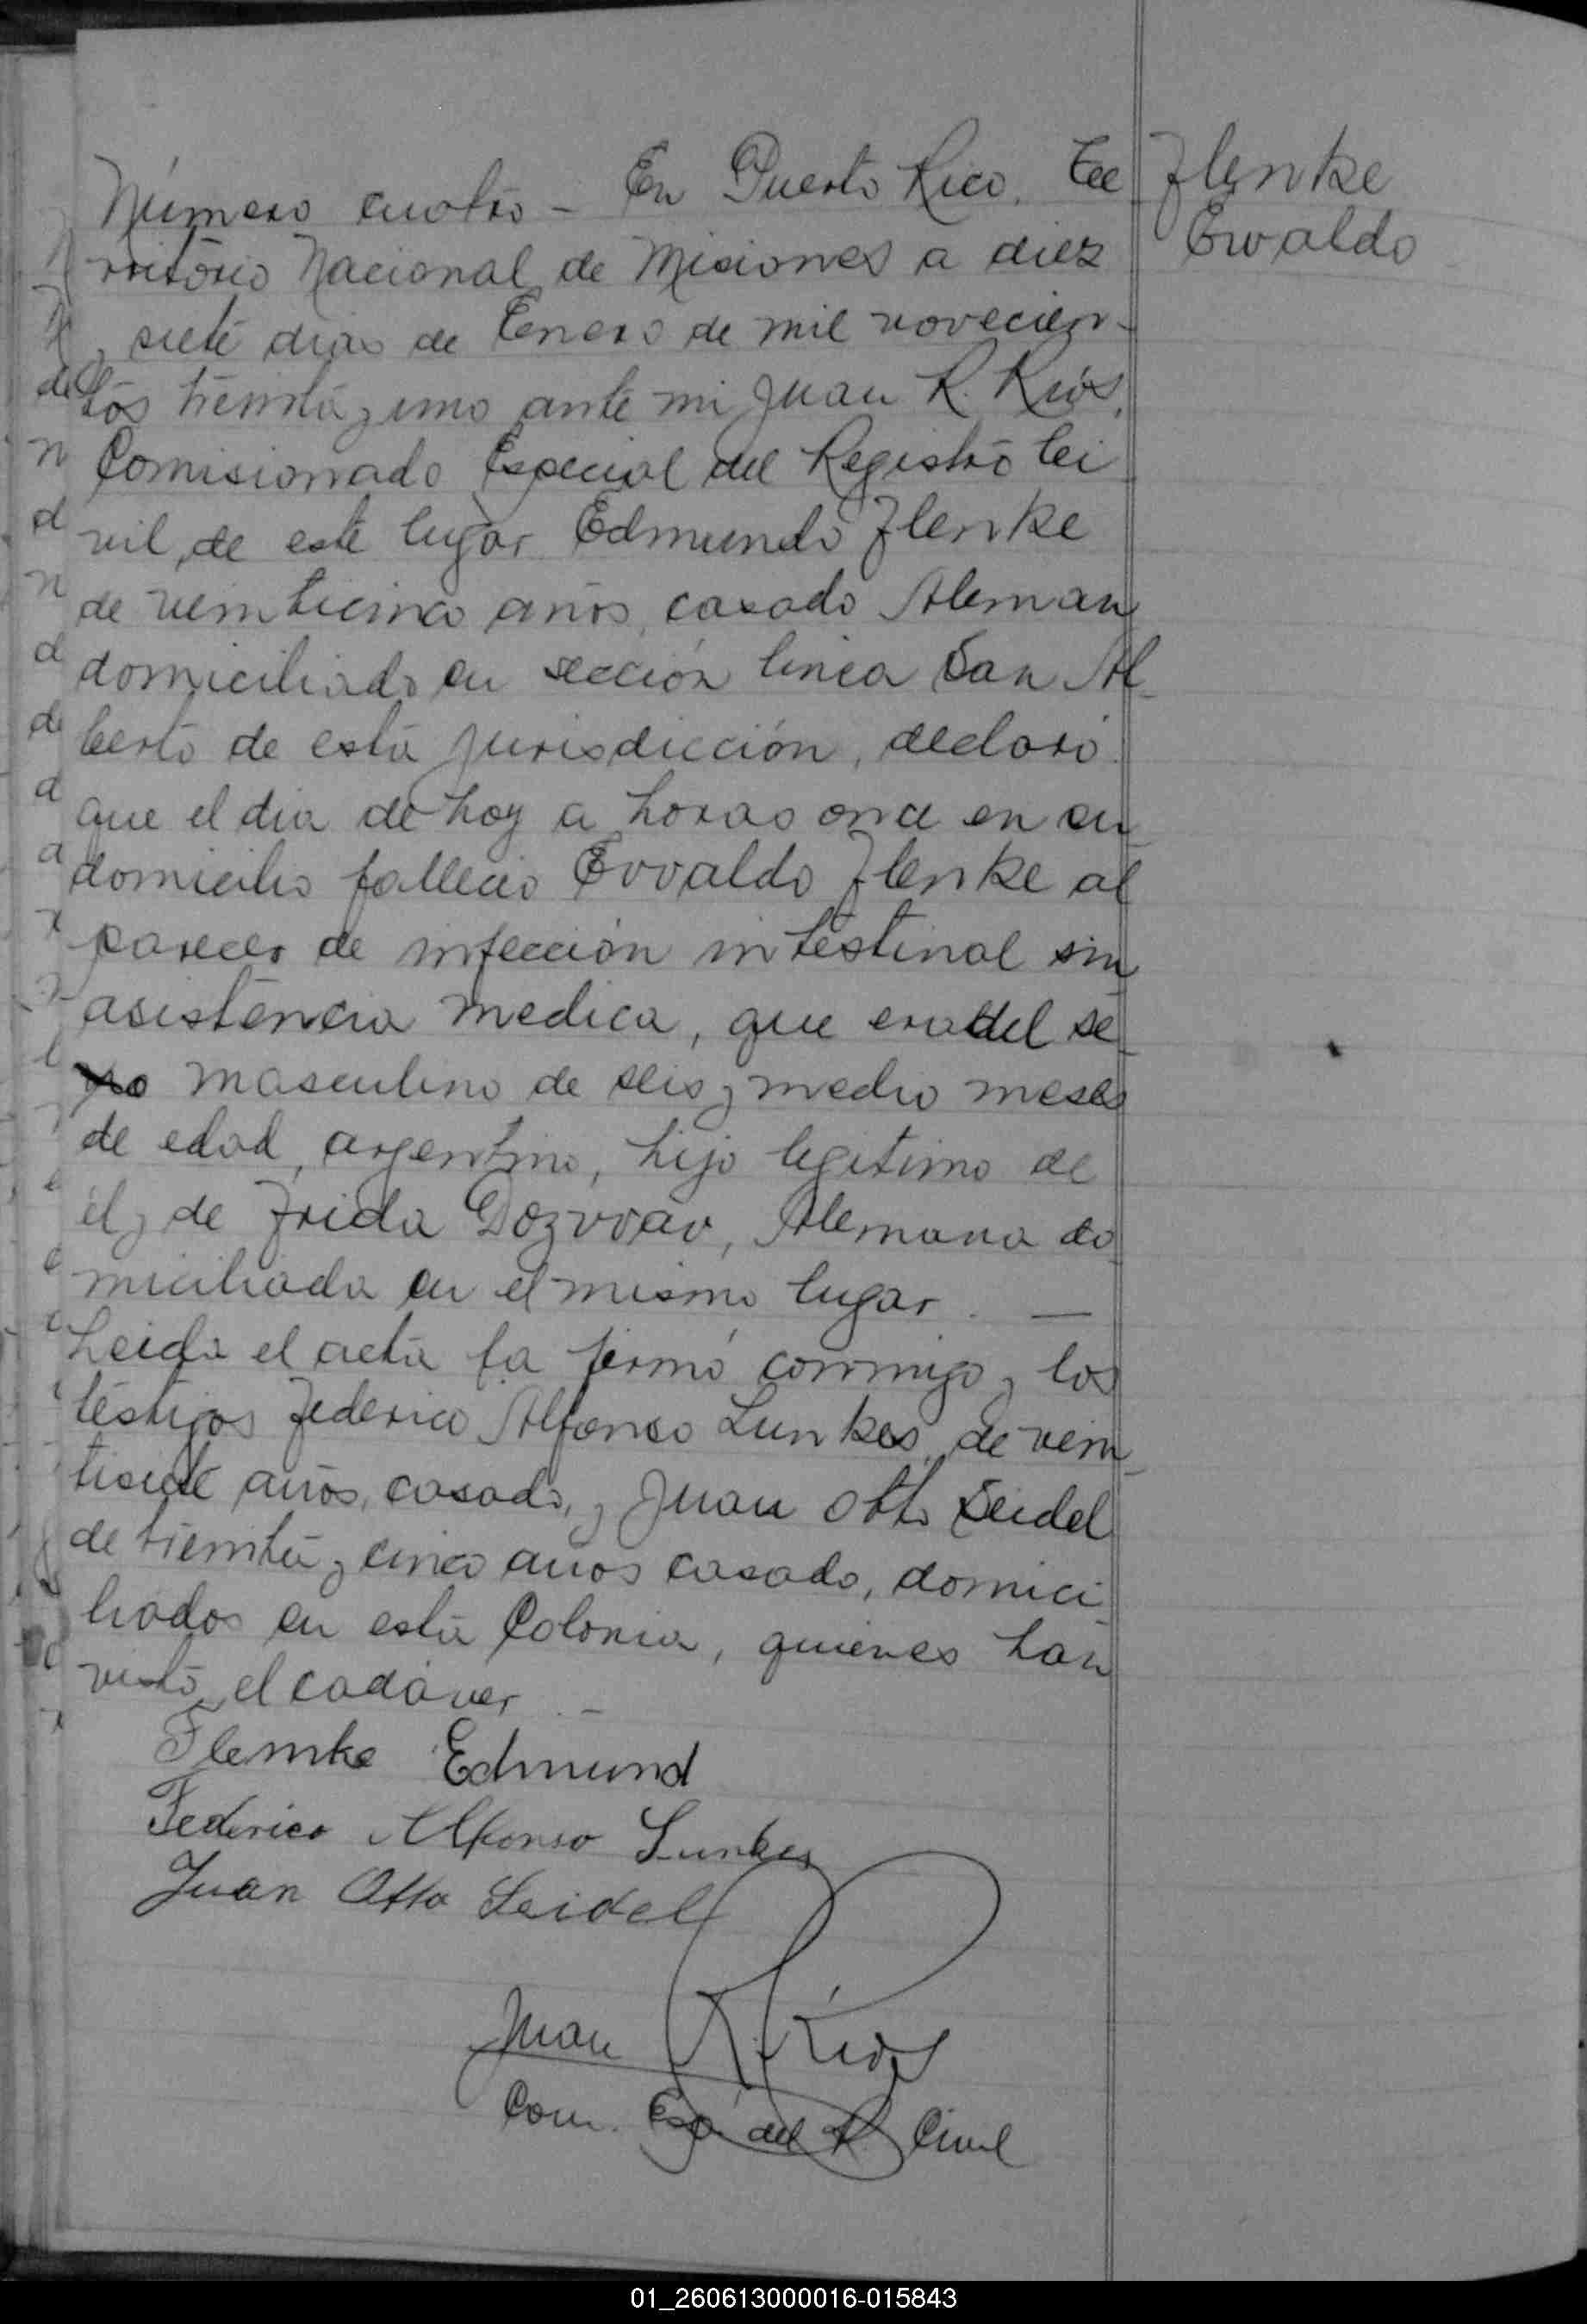 Número cuatro - En Puerto Rico, Te
Flenke
rritorio Nacional de Misiones a diez
Ewaldo
y siete dias de Enero de mil novecien-
tos treinta y uno ante mi Juan R. Rios,
Comisionado Especial del Registro Ci
vil de este lugar Edmundo Flenke
de veinticinco años, casado Aleman
domiciliado en sección linea San Al-
berto de esta jurisdicción, declaró
que el dia de hoy a horas once en su
domicilio fallecio Ewaldo Flenke al
parecer de infección intestinal sin
asistencia medica, que era del se
xo masculino de seis y medio meses
de edad, argentino, hijo legitimo de
él y de Frida Dozwav, Alemana do
miciliada en el mismo lugar. —
Leida el acta la firmó conmigo y los
testigos Federico Alfonso Lunkes, de vein-
tisiete años, casado, y Juan Otto Seidel
de treinta y cinco años casado, domici
liados en esta Colonia, quienes han
visto el cadáver. -
Flemke Edmund
Federico Alfonso Lunkes
Juan Otto Seidel
Juan R. Rios
Com. Esp. del R. Civil
01_260613000016-015843